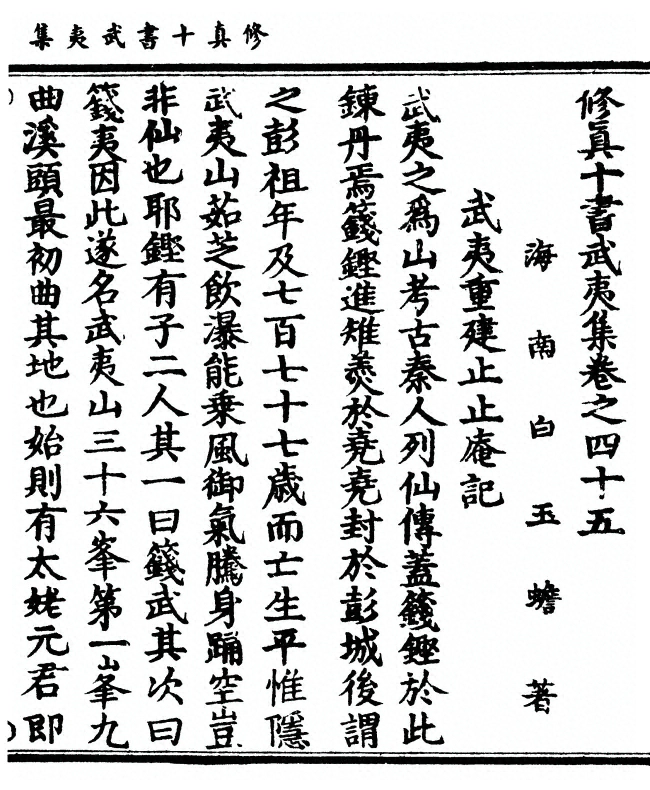 修真十書武夷集
修眞十書武夷集卷之四十五
海南白玉蟾著
武夷重建止止庵記
武夷之爲山考古秦人列仙傳蓋籛鏗於此
鍊丹焉籛鏗進雉羹於堯堯封於彭城後謂
之彭祖年及七百七十七歳而亡生平惟隱
武夷山茹芝飲瀑能乗風御氣騰身踊空豈
非仙也耶鏗有子二人其一曰籛武其次曰
籛夷因此遂名武夷山三十六峯第一峯九
曲溪頭最初曲其地也始則有太姥元君即